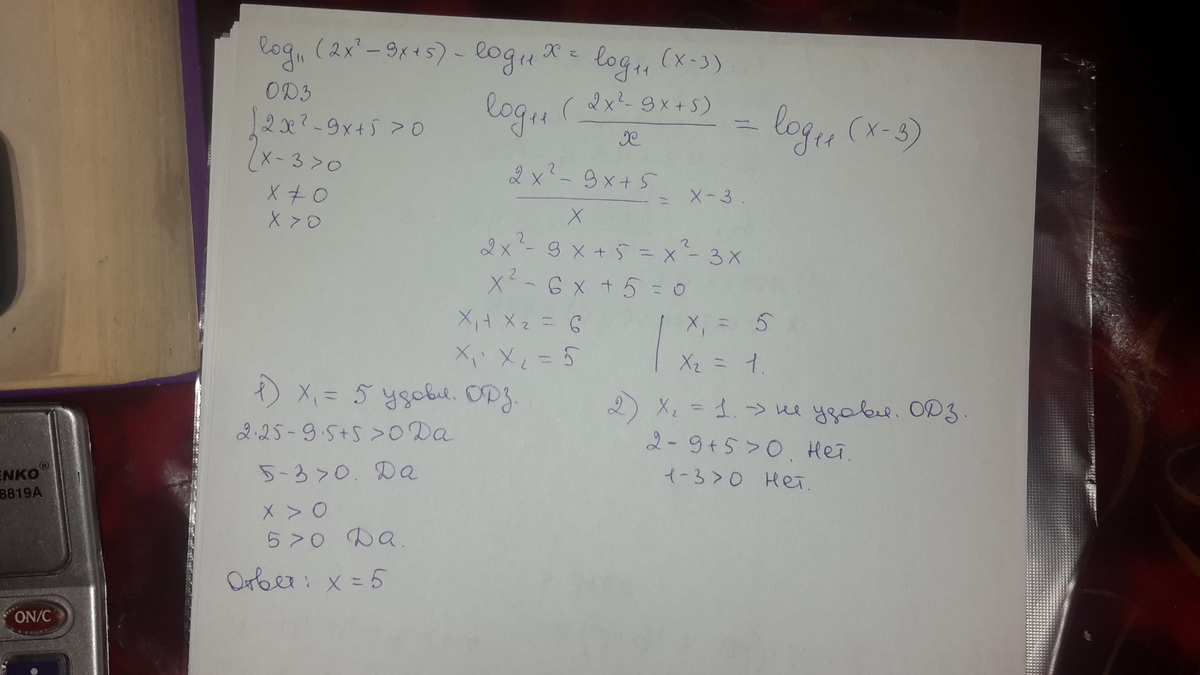 log₁₁ (2x² - 9x + 5) - log₁₁ x = log₁₁ (x-3)
ОДЗ
{ 2x² - 9x + 5 > 0
x - 3 > 0
x ≠ 0
x > 0
log₁₁ ( (2x² - 9x + 5) / x = log₁₁ (x-3)
(2x² - 9x + 5) / x = x - 3.
2x² - 9x + 5 = x² - 3x
x² - 6x + 5 = 0
x₁ + x₂ = 6 | x₁ = 5
x₁ · x₂ = 5 | x₂ = 1.
1) x₁ = 5 удовл. ОДЗ.
2·25 - 9·5 + 5 > 0 Да
5 - 3 > 0. Да
x > 0
5 > 0 Да.
2) x₂ = 1. → не удовл. ОДЗ.
2 - 9 + 5 > 0. Нет.
1 - 3 > 0 Нет.
Ответ: x = 5
ENKO®
8819A
ON/C